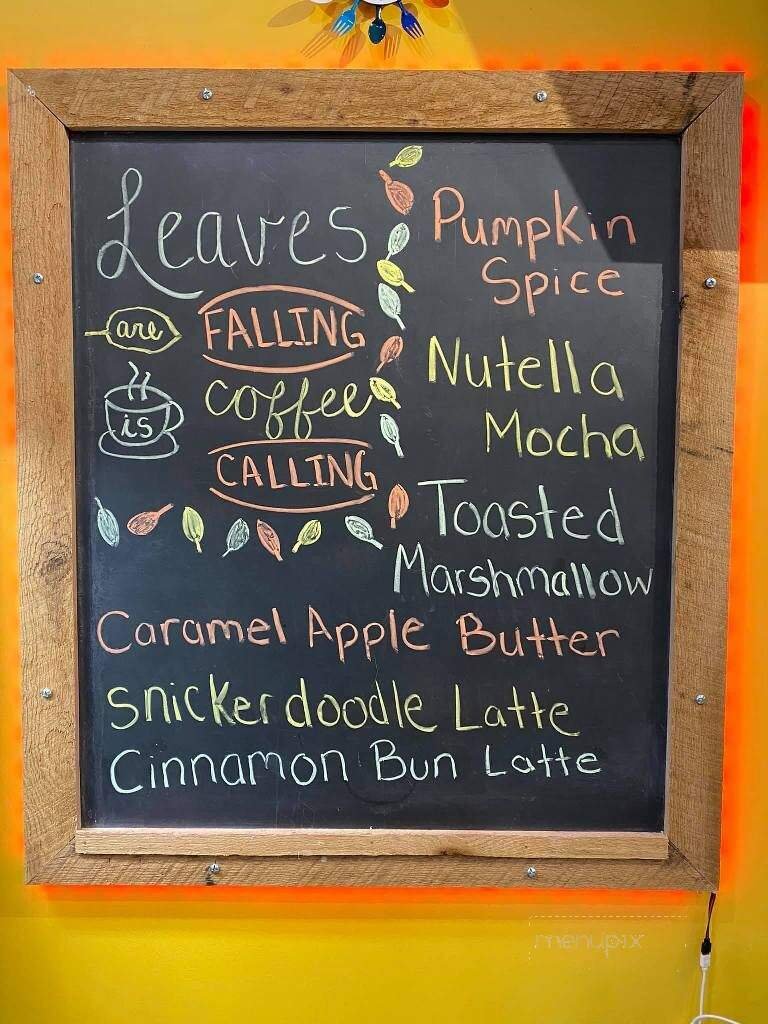 Leaves
are FALLING
is coffee
CALLING
Pumpkin
Spice
Nutella
Mocha
Toasted
Marshmallow
Caramel Apple Butter
snickerdoodle Latte
Cinnamon Bun Latte
menupix